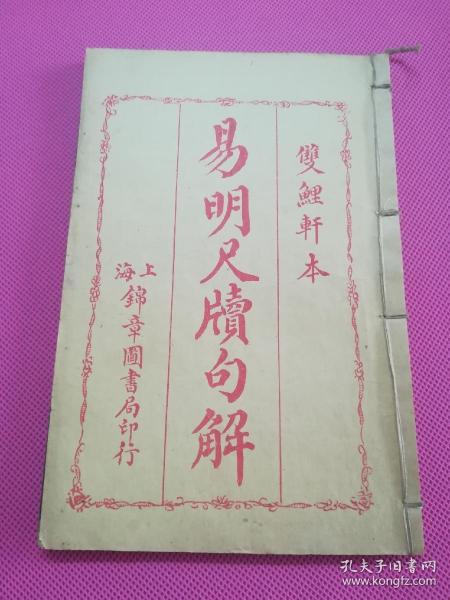 雙鯉軒本
易明尺牘句解
上海錦章圖書局印行
孔夫子旧书网
www.kongfz.com